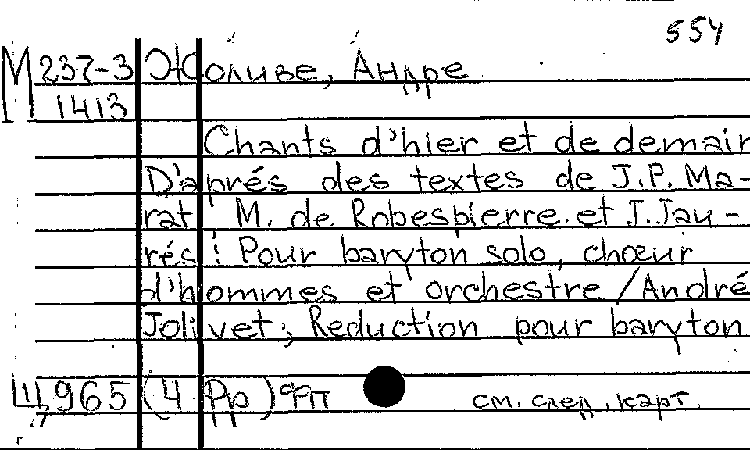 554
М 237-3 Жоливе, Андре
1413
Chants d'hier et de demain
D'aprés des textes de J.P. Ma-
rat, M. de Robespierre et J. Jau-
rés : Pour baryton solo, chœur
d'hommes et orchestre / André
Jolivet ; Reduction pour baryton
965 (4 Рр) ФП см. след. карт.